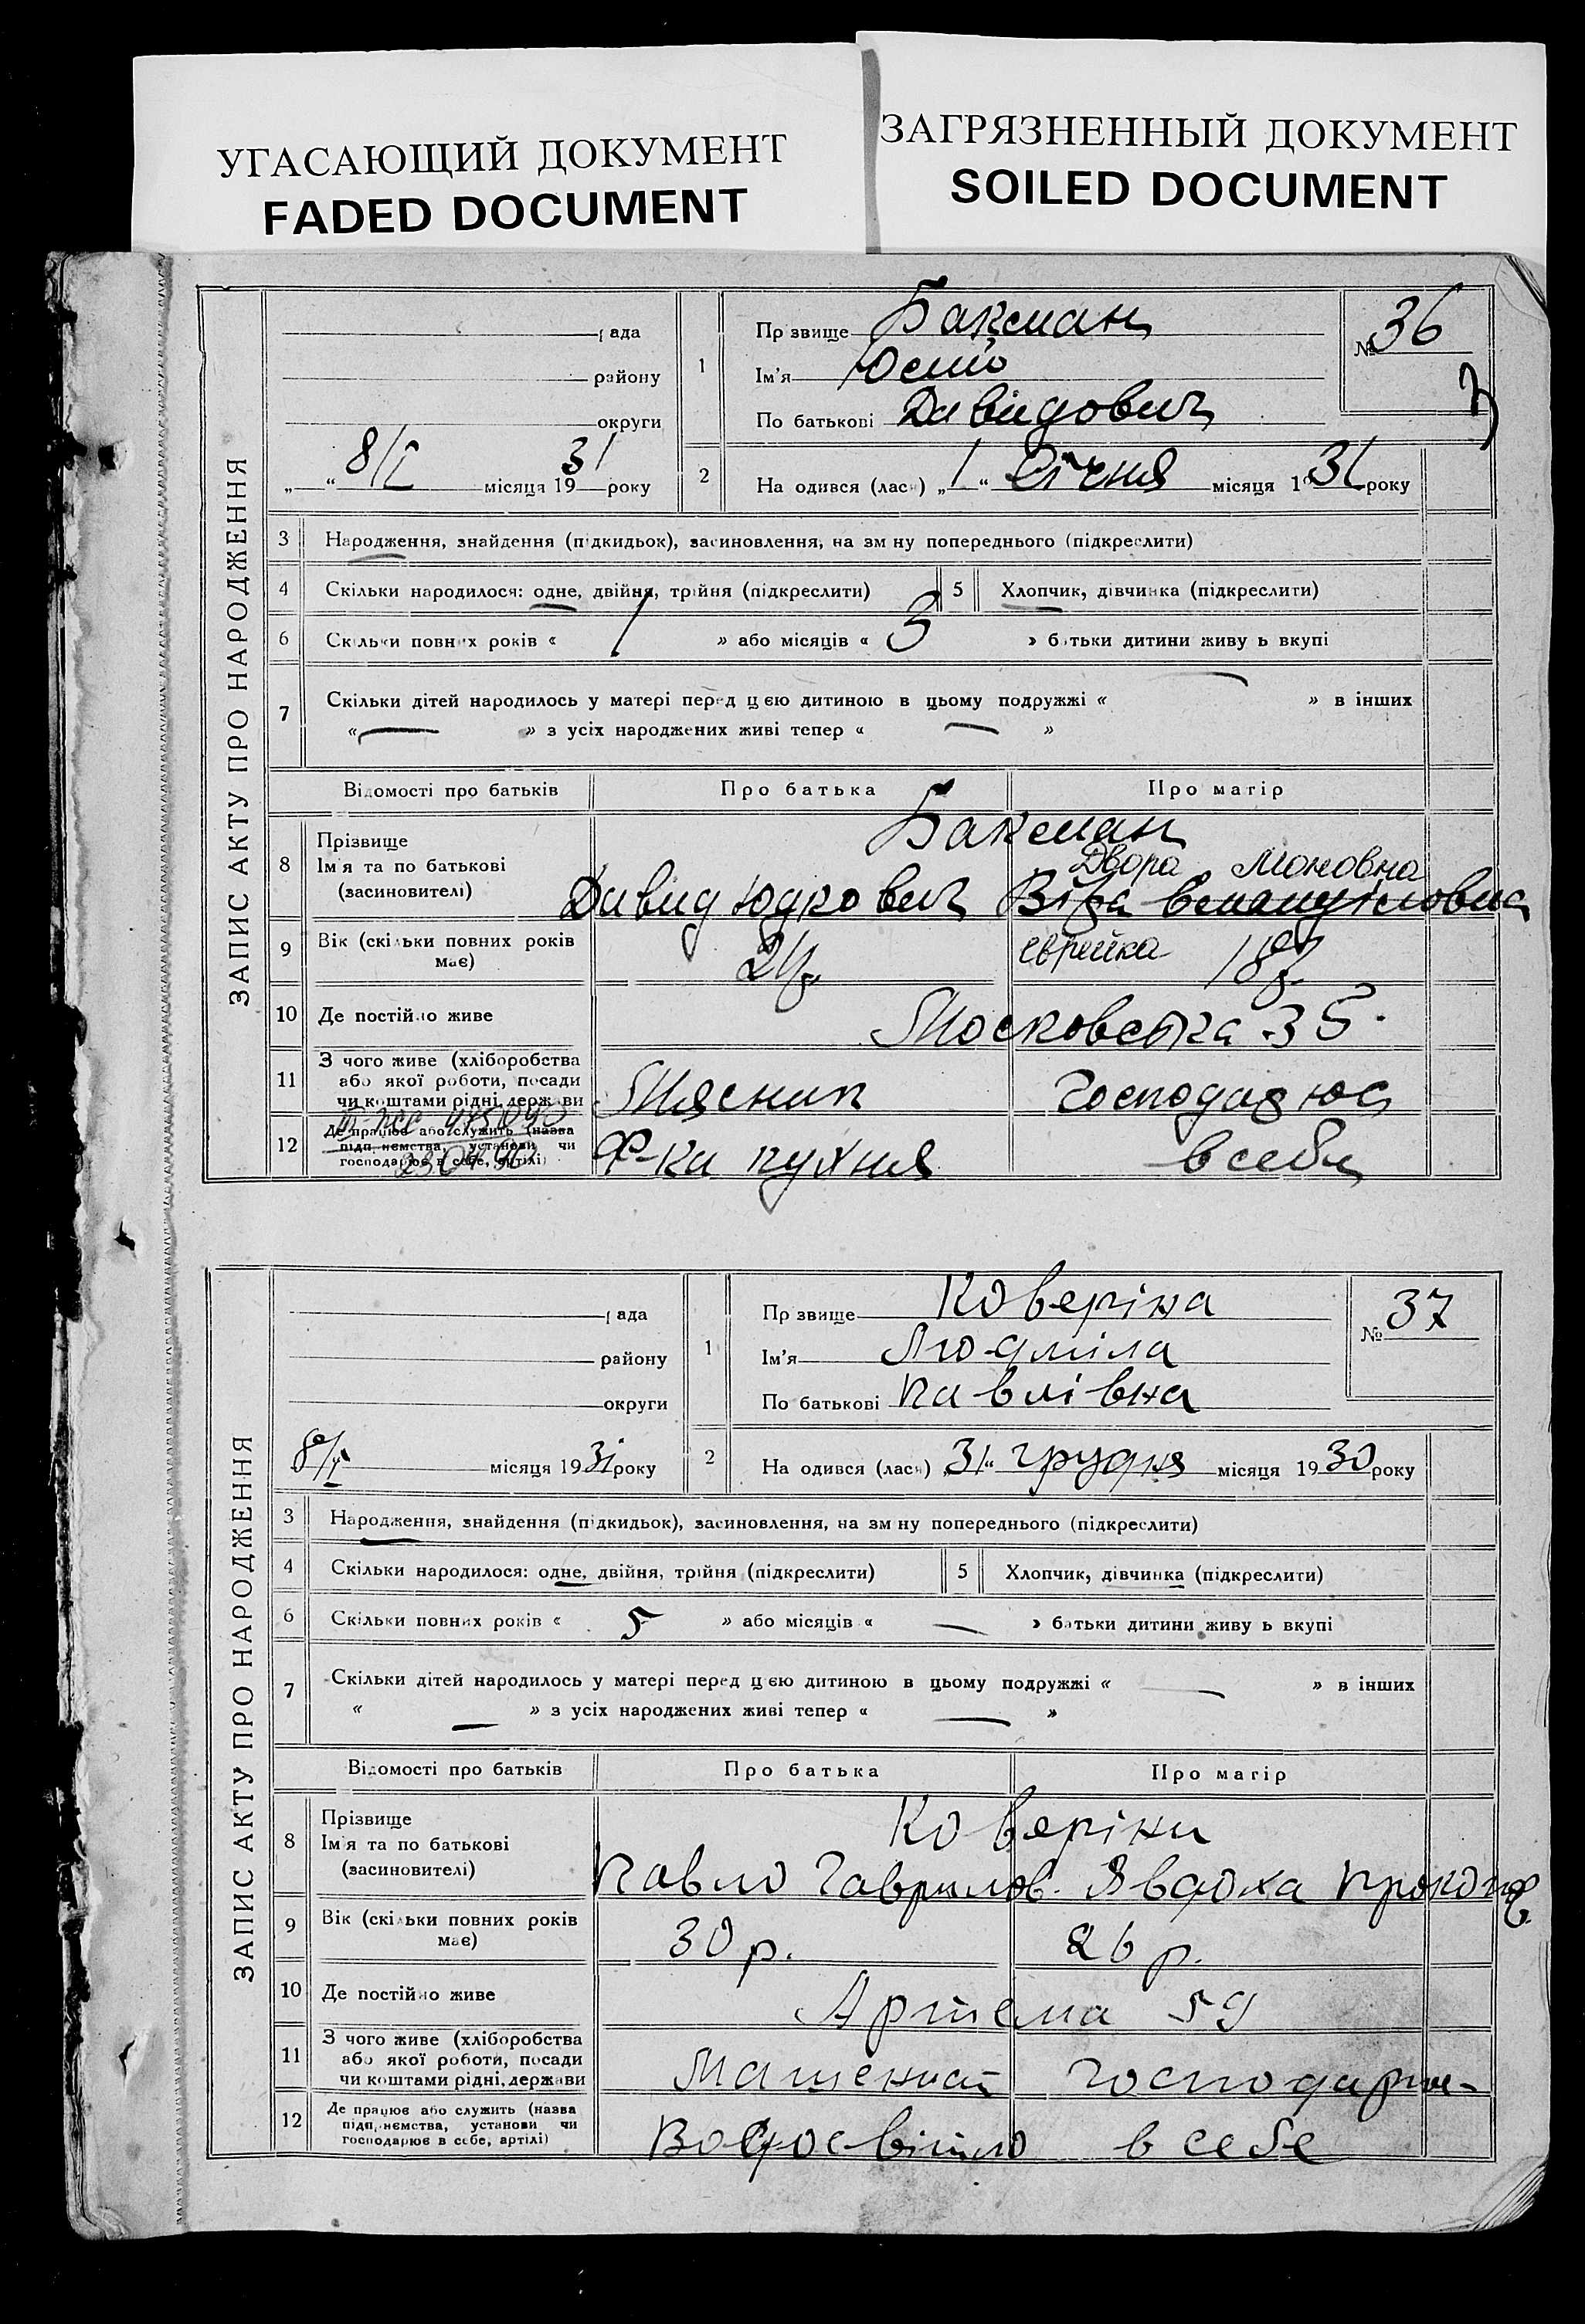 УГАСАЮЩИЙ ДОКУМЕНТ
FADED DOCUMENT
ЗАГРЯЗНЕННЫЙ ДОКУМЕНТ
SOILED DOCUMENT
ЗАПИС АКТУ ПРО НАРОДЖЕННЯ
рада
району
округи
„ “ 8/I місяця 1931 року
1 Прзвище Баксман
Ім'я Юсип
По батькові Давідович
№ 36
3
2 На одився (лась) „1“ січня місяця 1931 року
3 Народження, знайдення (підкидьок), засиновлення, на зм ну попереднього (підкреслити)
4 Скільки народилося: одне, двійня, трійня (підкреслити) 5 Хлопчик, дівчинка (підкреслити)
6 Скільки повних років « 1 » або місяців « 3 » батьки дитини живу ь вкупі
7 Скільки дітей народилось у матері перед цією дитиною в цьому подружжі « — » в інших
« — » з усіх народжених живі тепер « — »
Відомості про батьків Про батька Про матір
8 Прізвище
Ім'я та по батькові
(засиновителі)
Баксман
Двора Моновна
Давид Юдкович Віра
9 Вік (скільки повних років має) 24р. єврейка 18р.
10 Де постійно живе Московська 35.
11 З чого живе (хліборобства
або якої роботи, посади
чи коштами рідні, держави
Мясник Господарює
12 Де працює або служить (назва
підприємства, установи чи
господарює в себе, артілі)
Ф-ка кухня в себе
ЗАПИС АКТУ ПРО НАРОДЖЕННЯ
рада
району
округи
8/I місяця 1931 року
1 Прзвище Коверіна
Ім'я Людміла
По батькові Павлівна
№ 37
2 На одився (лась) „31“ грудня місяця 1930 року
3 Народження, знайдення (підкидьок), засиновлення, на зм ну попереднього (підкреслити)
4 Скільки народилося: одне, двійня, трійня (підкреслити) 5 Хлопчик, дівчинка (підкреслити)
6 Скільки повних років « 5 » або місяців « — » батьки дитини живу ь вкупі
7 Скільки дітей народилось у матері перед цією дитиною в цьому подружжі « — » в інших
« — » з усіх народжених живі тепер « — »
Відомості про батьків Про батька Про матір
8 Прізвище
Ім'я та по батькові
(засиновителі)
Коверіни
Павло Гаврилов. Явдоха Прокопов.
9 Вік (скільки повних років має) 30 р. 26 р.
10 Де постійно живе Артема 59
11 З чого живе (хліборобства
або якої роботи, посади
чи коштами рідні, держави
Машеніст господарює
12 Де працює або служить (назва
підприємства, установи чи
господарює в себе, артілі)
Водосвітло в себе